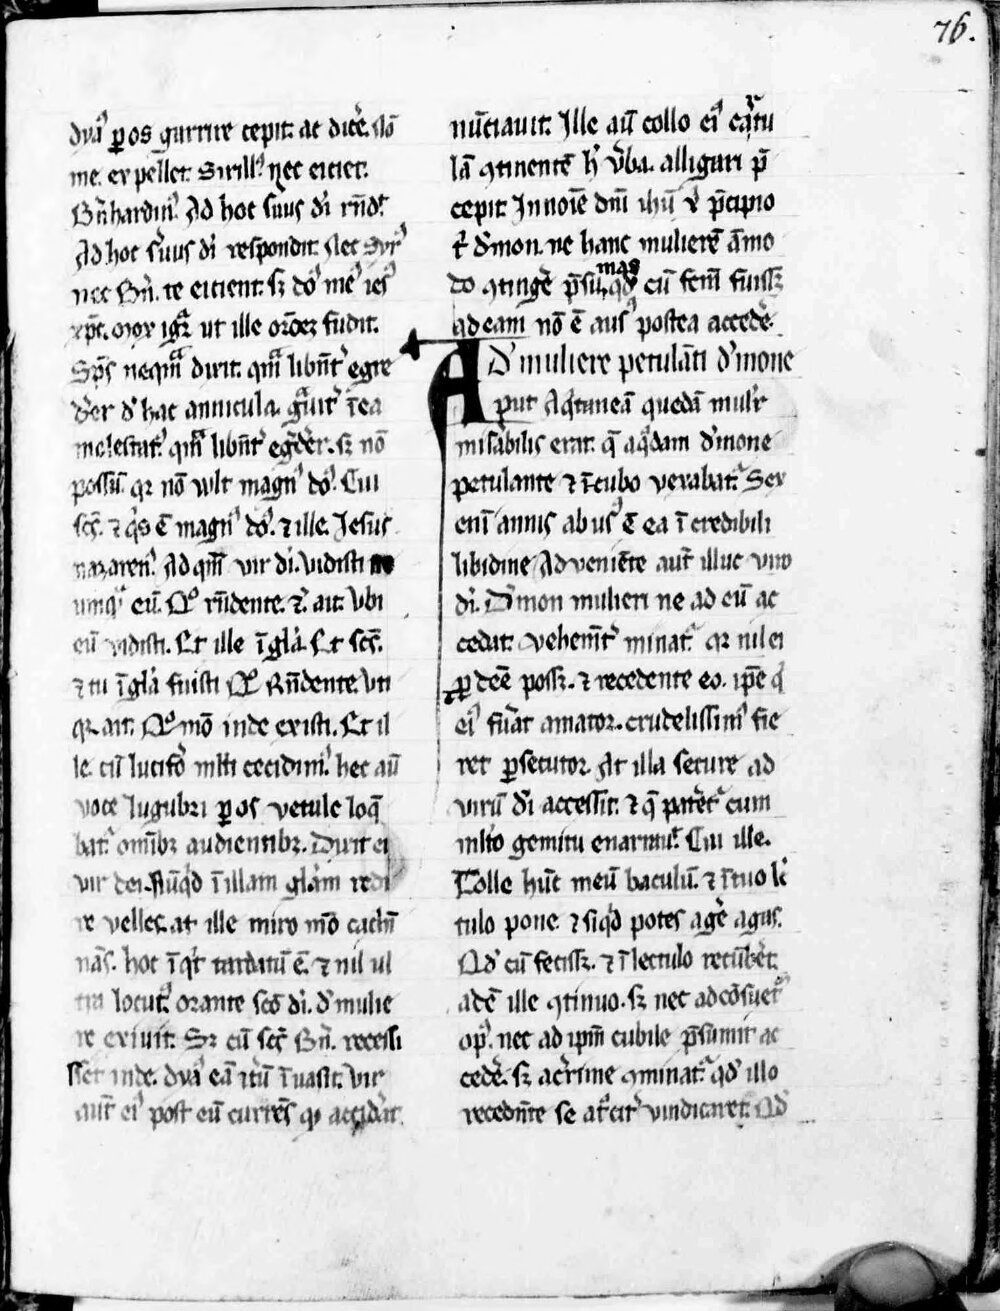 76.
dyaƀ ꝑ os garrire cepit. at dicē. Nō
me. expellet. Sirillꝰ nec eiciet.
Bn̄hardinꝰ. Ad hoc suus dī rn̄dt̄.
Ad hoc s̄uus dī respondit. Nec Syrꝰ
nec Bn̄. te eicient. sꝫ dōꝰ mēꝰ ieſꝰ
xp̄c. Mox igr̄ ut ille orōeꝫ fudit.
Sp̄s neq̄m dixit. q̄m libn̄t̄ egre
d̄er d̓ hac annicula. g̈uit̄ ī ea
molestatꝰ. q̄m libn̄t̄ eḡder̄. sꝫ nō
possū. qꝛ nō vult magnꝰ dōꝰ. Cui
sc̄s. ⁊ q̓s ē magnꝰ dōꝰ. ⁊ ille. Jesus
nazarenꝰ. Ad q̄m vir dī. Vidisti ne
umq̄ᵃ eū. Qͦ rn̄dente. ⁊. ait. Vbi
eū vidisti. Et ille ī gl̄a. Et sc̄s.
⁊ tu ī gl̄a fuisti. Qͦ Rn̄dente. Vti
qꝫ ait. Qͦmō inde existi. Et il
le. cū lucif̓o ml̄ti cecidimꝰ. hec aū
voce lugubri ꝑ os vetule loq̄
bat̄ omībꝫ audientibꝫ. Dixit ei
vir dei. Nūq̓d ī illam gl̄am redi
re velles. at ille miro mō cachī
nās. hoc ī q̄t tardatū ē. ⁊ nil ul
tra locutꝰ. orante sc̄o dī. d̓ mulie
re exivit. Sꝫ cū sc̄s Bn̄. recessi
sset inde. dyaƀ eā it̄ū īvasit. Vir
aut̄ eiꝰ post eū currēs qͩ accid̓at
nūtiavit. Ille aū collo eiꝰ cartu
lā ꝯtinentē h̄ v̄ba. alligari p̄
cepit. In noīe dn̄i ihū xp̄i p̄cipio
t̄ d̓mon. ne hanc mulierē āmo
do ꝯtingē p̄sumas. qd̓ cū fc̄m fuissꝫ
ad eam nō ē ausꝰ postea accedē.
AD̓ muliere petulāti d̓mone
Aput Aq̓taneā quedā mul̓r
mis̄abilis erat. q̄ a q̓dam d̓mone
petulante ⁊ īcubo vexabat̄. Sex
enī annis abusꝰ ē ea īcredibili
libidine. Adveniēte aut̄ illuc viro
dī. D̓mon mulieri ne ad eū ac
cedat. vehemt̄ minat̄. qꝛ nil ei
ꝓdeē possꝫ. ⁊ recedente eo. ip̄e q̓
eiꝰ fūat amator. crudelissimꝰ fie
ret ꝑsecutor. At illa secure ad
virū dī accessit. ⁊ q̄ patēt̄ cum
ml̄to gemitu enarravit. Cui ille.
Tolle hūc meū baculū. ⁊ ī tuo lc̄
tulo pone. ⁊ siq̓d potes agē agas.
Qd̓ cū fecissꝫ. ⁊ ī lectulo recūbēt.
adē ille ꝯtinuo. sꝫ nec ad cōsuetꝰ
opꝰ. nec ad ip̄m cubile p̄sumit ac
cedē. sꝫ ac̄rime ꝯminat̄. qd̓ illo
recedn̄te se at̓cit̄ vindicaret. Qd̓